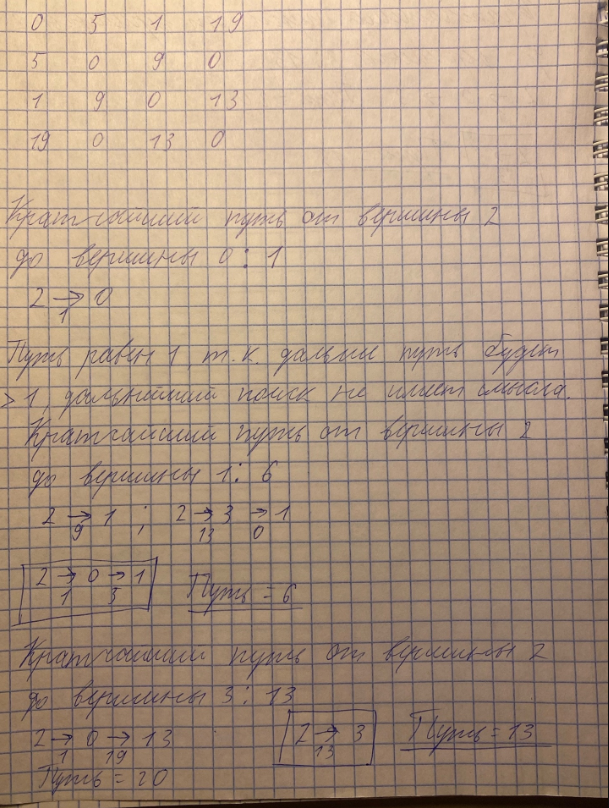 0 5 1 19
5 0 9 0
1 9 0 13
19 0 13 0
Кратчайший путь от вершины 2
до вершины 0 : 1
2 → 0
1
Путь равен 1, т.к. дальше путь будет
> 1, дальнейший поиск не имеет смысла.
Кратчайший путь от вершины 2
до вершины 1: 6
2 → 1 ; 2 → 3 → 1
9 13 0
2 → 0 → 1 Путь = 6
1 5
Кратчайший путь от вершины 2
до вершины 3 : 13
2 → 0 → 13 2 → 3 Путь = 13
1 19 13
Путь = 20